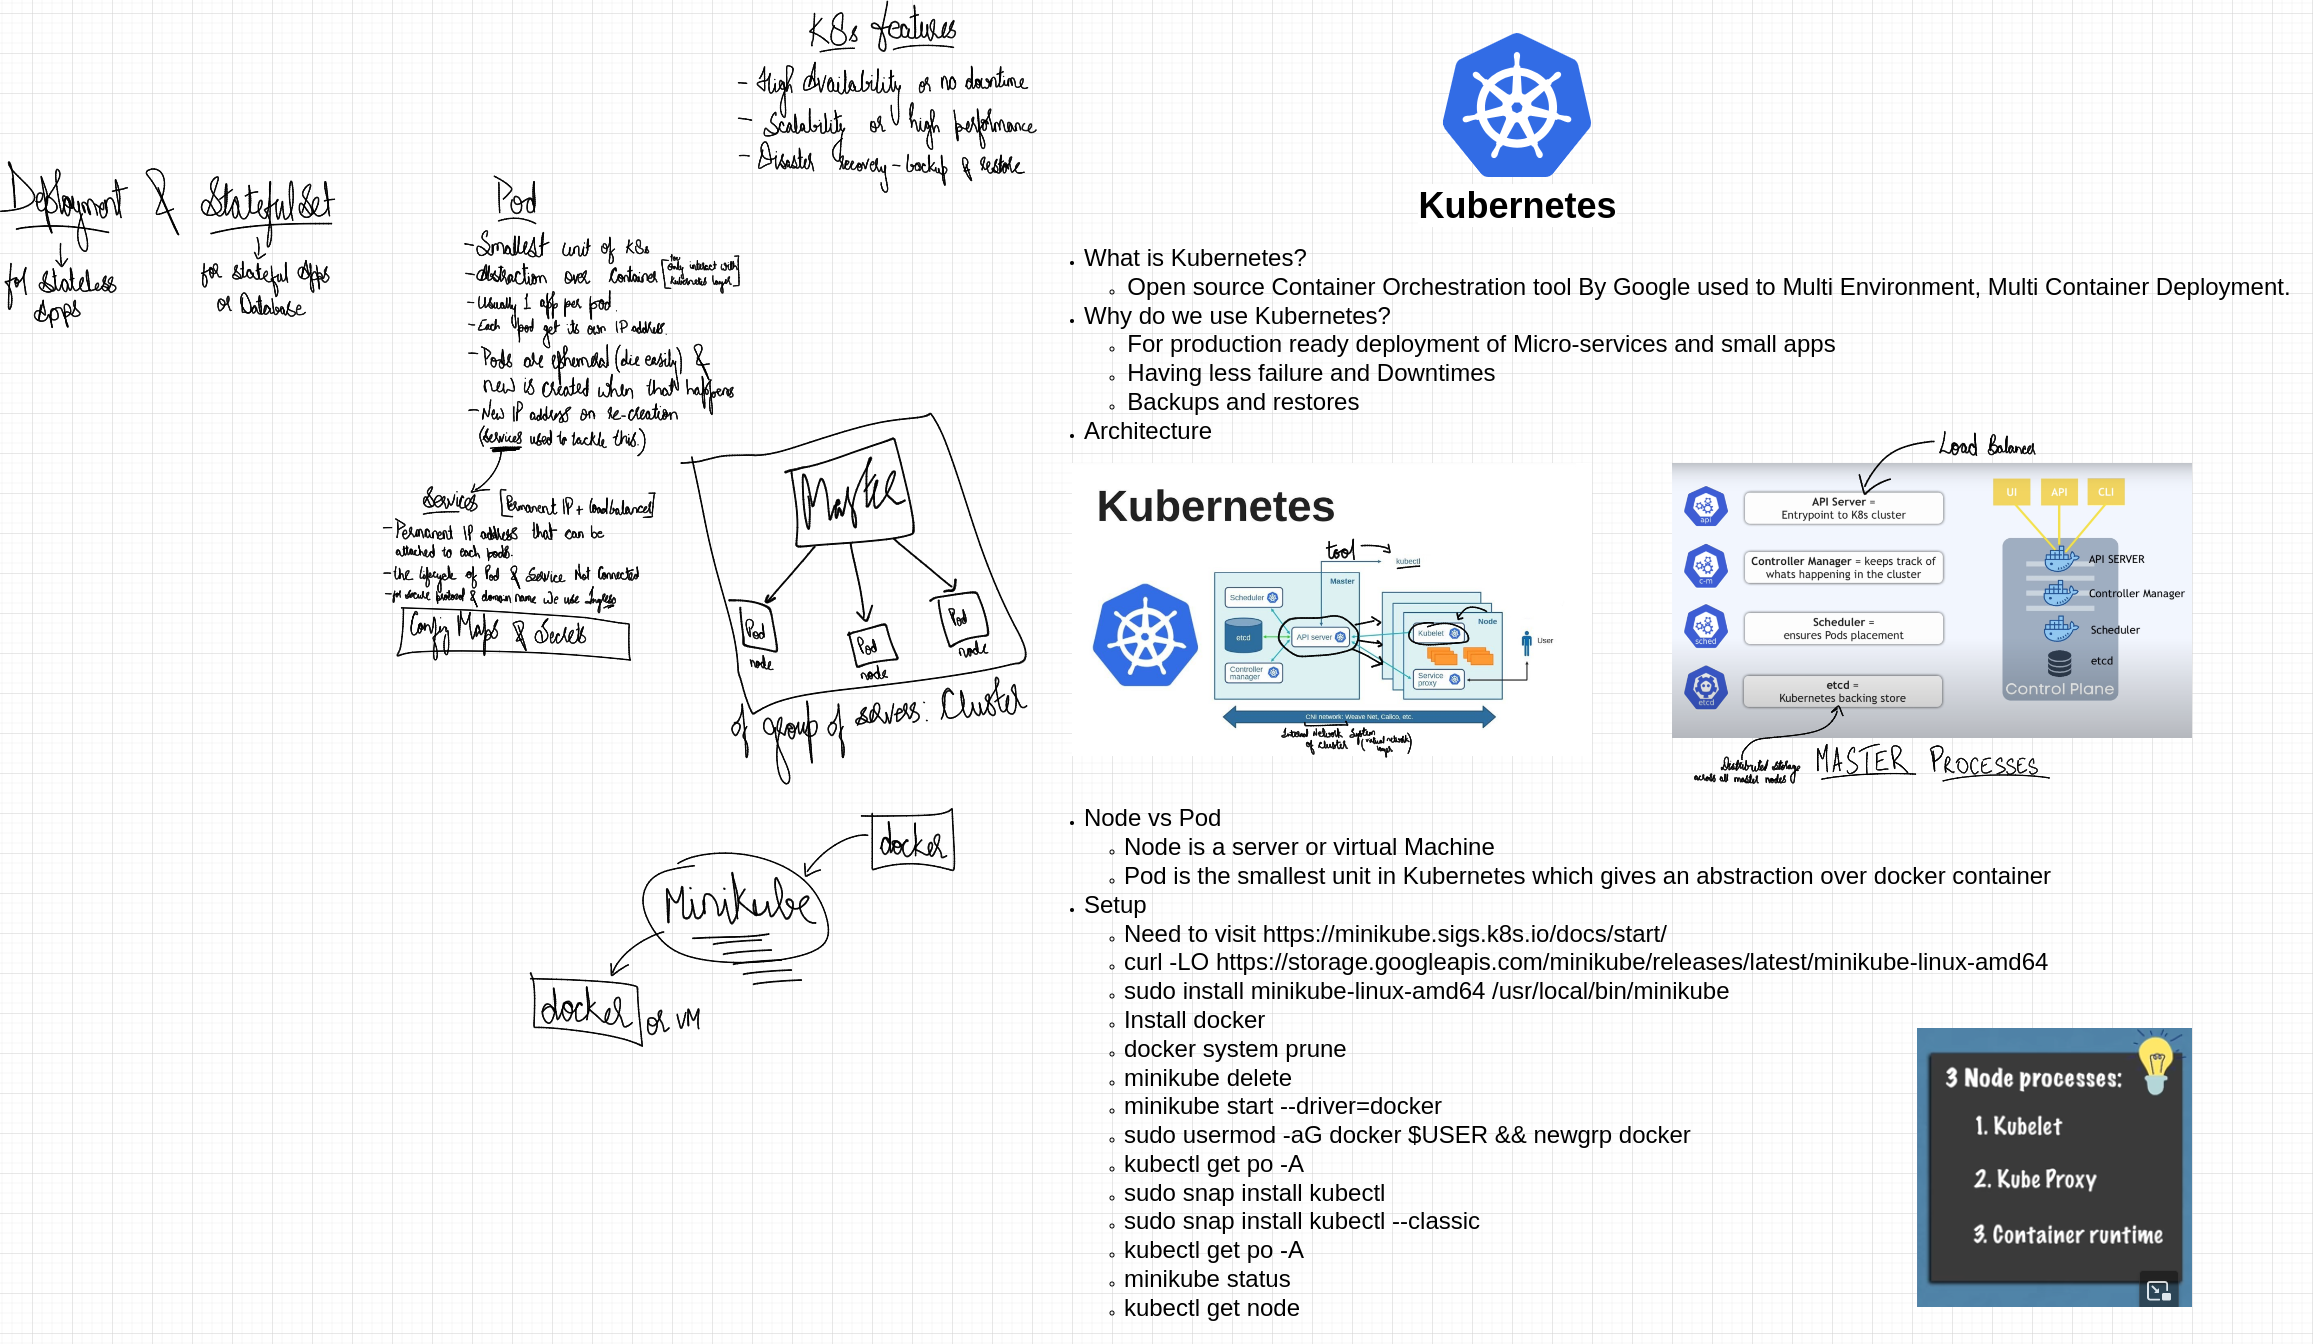 K8s features
- High Availability or no downtime
- Scalability or high performance
- Disaster recovery - backup & restore
Deployment & StatefulSet
for stateless Apps
for stateful Apps or Database
Pod
- Smallest unit of K8s
- Abstraction over Container [You only interact with Kubernetes layer]
- Usually 1 app per pod.
- Each pod get its own IP address.
- Pods are ephemeral (die easily) &
new is created when that happens
- New IP address on re-creation
(Services used to tackle this.)
Services [Permanent IP + loadbalancer]
- Permanent IP address that can be
attached to each pods.
- the lifecycle of Pod & Service Not Connected
- for secure protocol & domain name We use Ingress
Config Maps & Secrets
Master
Pod
node
Pod
node
Pod
node
of group of servers: Cluster
docker
Minikube
docker or VM
Kubernetes
What is Kubernetes?
Open source Container Orchestration tool By Google used to Multi Environment, Multi Container Deployment.
Why do we use Kubernetes?
For production ready deployment of Micro-services and small apps
Having less failure and Downtimes
Backups and restores
Architecture
Kubernetes
tool
kubectl
Master
Scheduler
etcd
API server
Controller
manager
Node
Kubelet
Service
proxy
User
CNI network: Weave Net, Calico, etc.
Internal Network System
of cluster (virtual network
layer)
Load Balancer
api
API Server =
Entrypoint to K8s cluster
c-m
Controller Manager = keeps track of
whats happening in the cluster
sched
Scheduler =
ensures Pods placement
etcd
etcd =
Kubernetes backing store
UI API CLI
API SERVER
Controller Manager
Scheduler
etcd
Control Plane
Distributed storage
across all master nodes
MASTER PROCESSES
Node vs Pod
Node is a server or virtual Machine
Pod is the smallest unit in Kubernetes which gives an abstraction over docker container
Setup
Need to visit https://minikube.sigs.k8s.io/docs/start/
curl -LO https://storage.googleapis.com/minikube/releases/latest/minikube-linux-amd64
sudo install minikube-linux-amd64 /usr/local/bin/minikube
Install docker
docker system prune
minikube delete
minikube start --driver=docker
sudo usermod -aG docker $USER && newgrp docker
kubectl get po -A
sudo snap install kubectl
sudo snap install kubectl --classic
kubectl get po -A
minikube status
kubectl get node
3 Node processes:
1. Kubelet
2. Kube Proxy
3. Container runtime